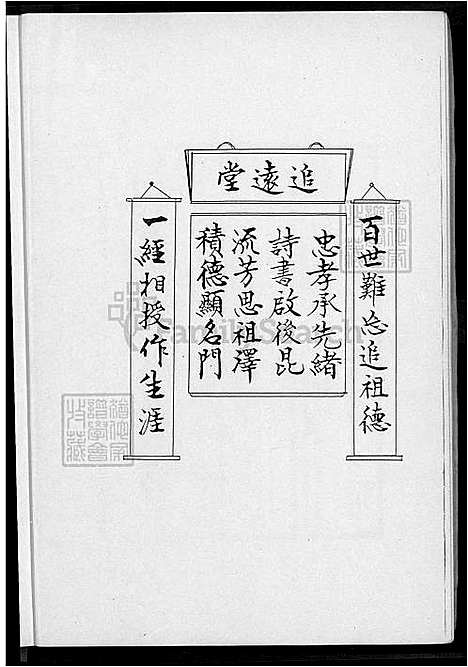 追遠堂
百世難忘追祖德
忠孝承先緒
詩書啟後昆
流芳思祖澤
積德顯名門
一經相授作生涯
FamilySearch